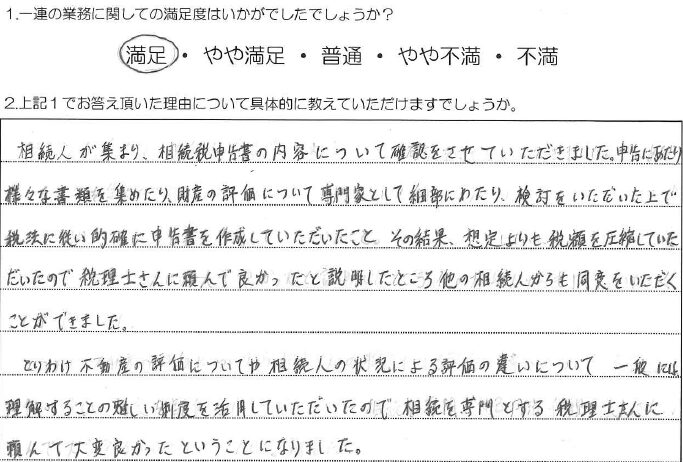 1.一連の業務に関しての満足度はいかがでしたでしょうか?
満足 ・ やや満足 ・ 普通 ・ やや不満 ・ 不満
2.上記1でお答え頂いた理由について具体的に教えていただけますでしょうか。
相続人が集まり、相続税申告書の内容について確認をさせていただきました。申告にあたり
様々な書類を集めたり、財産の評価について専門家として細部にわたり、検討をいただいた上で
税法に従い的確に申告書を作成していただいたこと その結果、想定よりも税額を圧縮していた
だいたので税理士さんに頼んで良かったと説明したところ他の相続人からも同意をいただく
ことができました。
とりわけ不動産の評価についてや相続人の状況による評価の違いについて 一般には
理解することの難しい制度を活用していただいたので相続を専門とする税理士さんに
頼んで大変良かったということになりました。